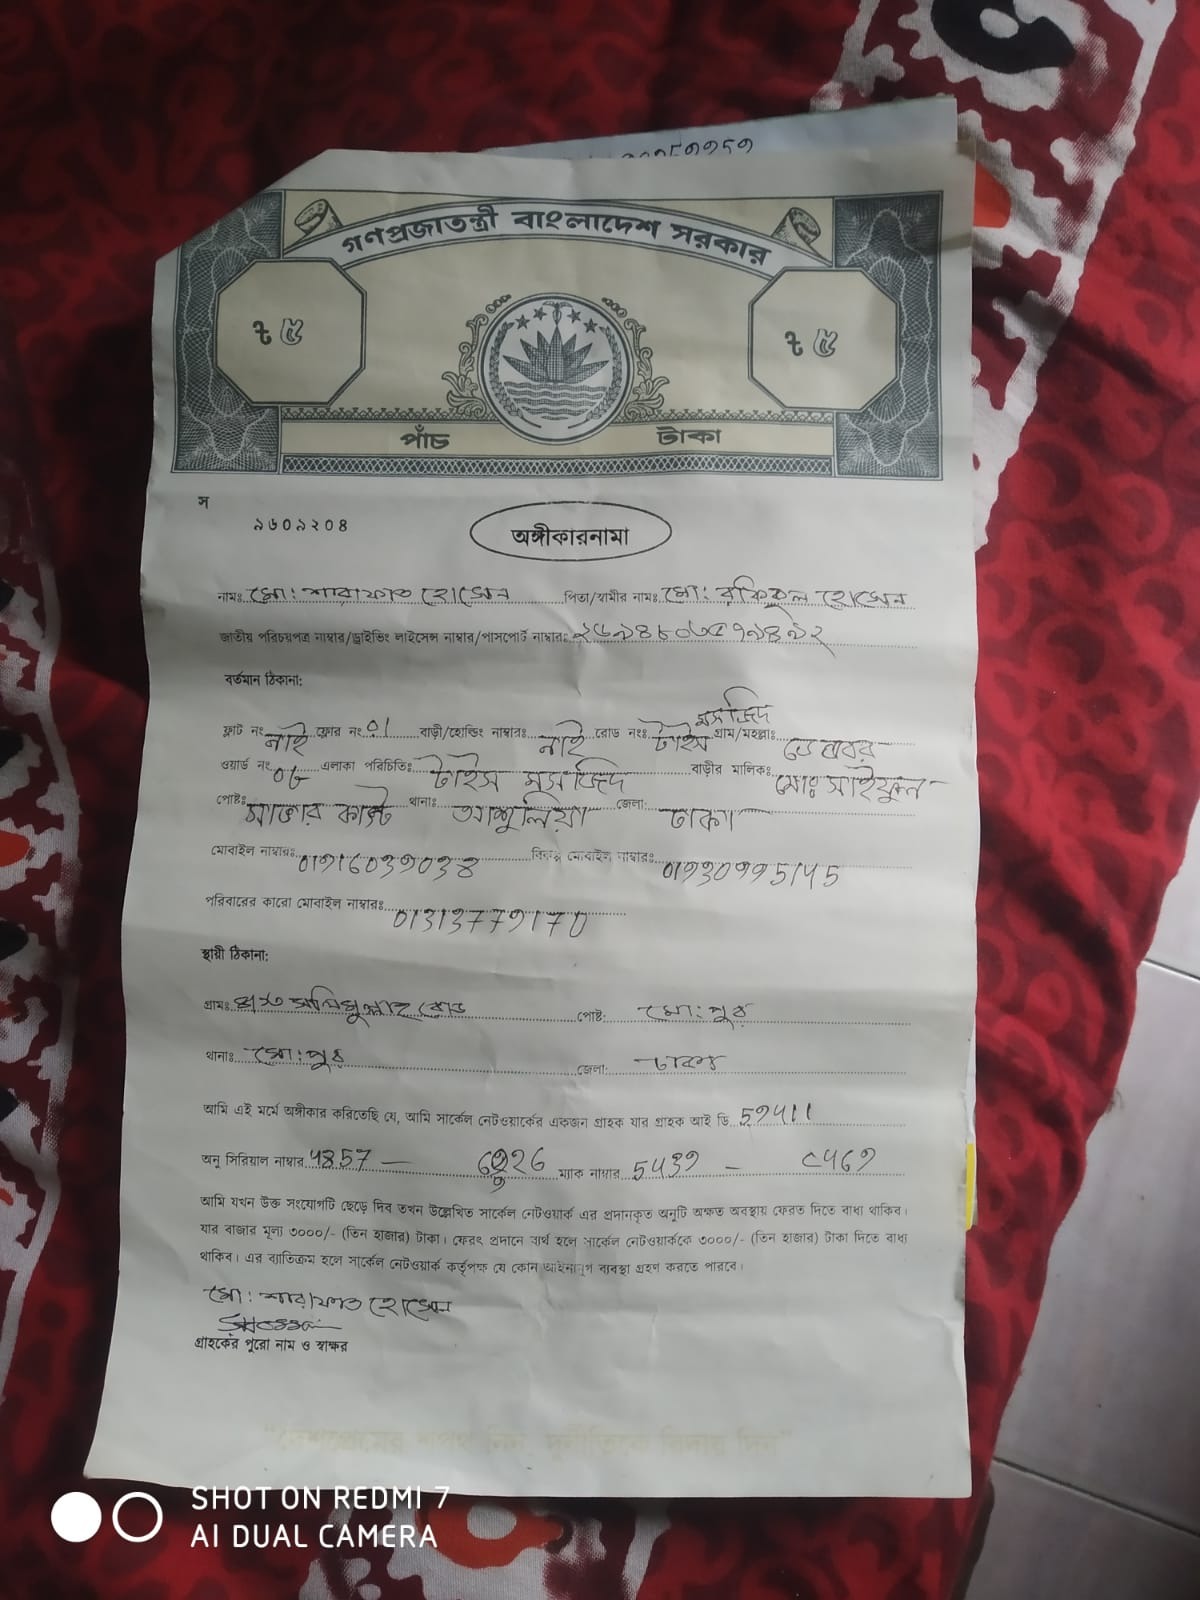 গণপ্রজাতন্ত্রী বাংলাদেশ সরকার
৳ ৫ ৳ ৫
পাঁচ টাকা
স
৯৬০৯২০৪
অঙ্গীকারনামা
নামঃ মো: শারাফাত হোসেন পিতা/স্বামীর নামঃ মো: রকিবুল হোসেন
জাতীয় পরিচয়পত্র নাম্বার/ড্রাইভিং লাইসেন্স নাম্বার/পাসপোর্ট নাম্বারঃ
বর্তমান ঠিকানা:
মসজিদ
ফ্লাট নং নাই ফ্লোর নং ০১ বাড়ী/হোল্ডিং নাম্বারঃ নাই রোড নংঃ টাইস গ্রাম/মহল্লাঃ ডেন্ডাবর
ওয়ার্ড নং ০৮ এলাকা পরিচিতিঃ টাইস মসজিদ বাড়ীর মালিকঃ মোঃ সাইফুল
পোষ্টঃ সাভার ক্যান্ট থানাঃ আশুলিয়া জেলা: ঢাকা
মোবাইল নাম্বারঃ বিকল্প মোবাইল নাম্বারঃ
পরিবারের কারো মোবাইল নাম্বারঃ
স্থায়ী ঠিকানা:
গ্রামঃ সলিমুল্লাহ রোড পোষ্ট: মো: পুর
থানাঃ মো: পুর জেলা: ঢাকা
আমি এই মর্মে অঙ্গীকার করিতেছি যে, আমি সার্কেল নেটওয়ার্কের একজন গ্রাহক যার গ্রাহক আই ডি
অনু সিরিয়াল নাম্বার ম্যাক নাম্বার
আমি যখন উক্ত সংযোগটি ছেড়ে দিব তখন উল্লেখিত সার্কেল নেটওয়ার্ক এর প্রদানকৃত অনুটি অক্ষত অবস্থায় ফেরত দিতে বাধ্য থাকিব।
যার বাজার মূল্য ৩০০০/- (তিন হাজার) টাকা। ফেরৎ প্রদানে ব্যর্থ হলে সার্কেল নেটওয়ার্ককে ৩০০০/- (তিন হাজার) টাকা দিতে বাধ্য
থাকিব। এর ব্যতিক্রম হলে সার্কেল নেটওয়ার্ক কর্তৃপক্ষ যে কোন আইনানুগ ব্যবস্থা গ্রহণ করতে পারবে।
মো: শারাফাত হোসেন
গ্রাহকের পুরো নাম ও স্বাক্ষর
SHOT ON REDMI 7
AI DUAL CAMERA